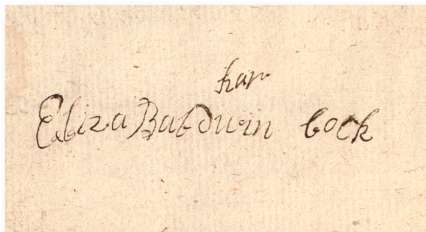 har
Eliza Baldwin bock